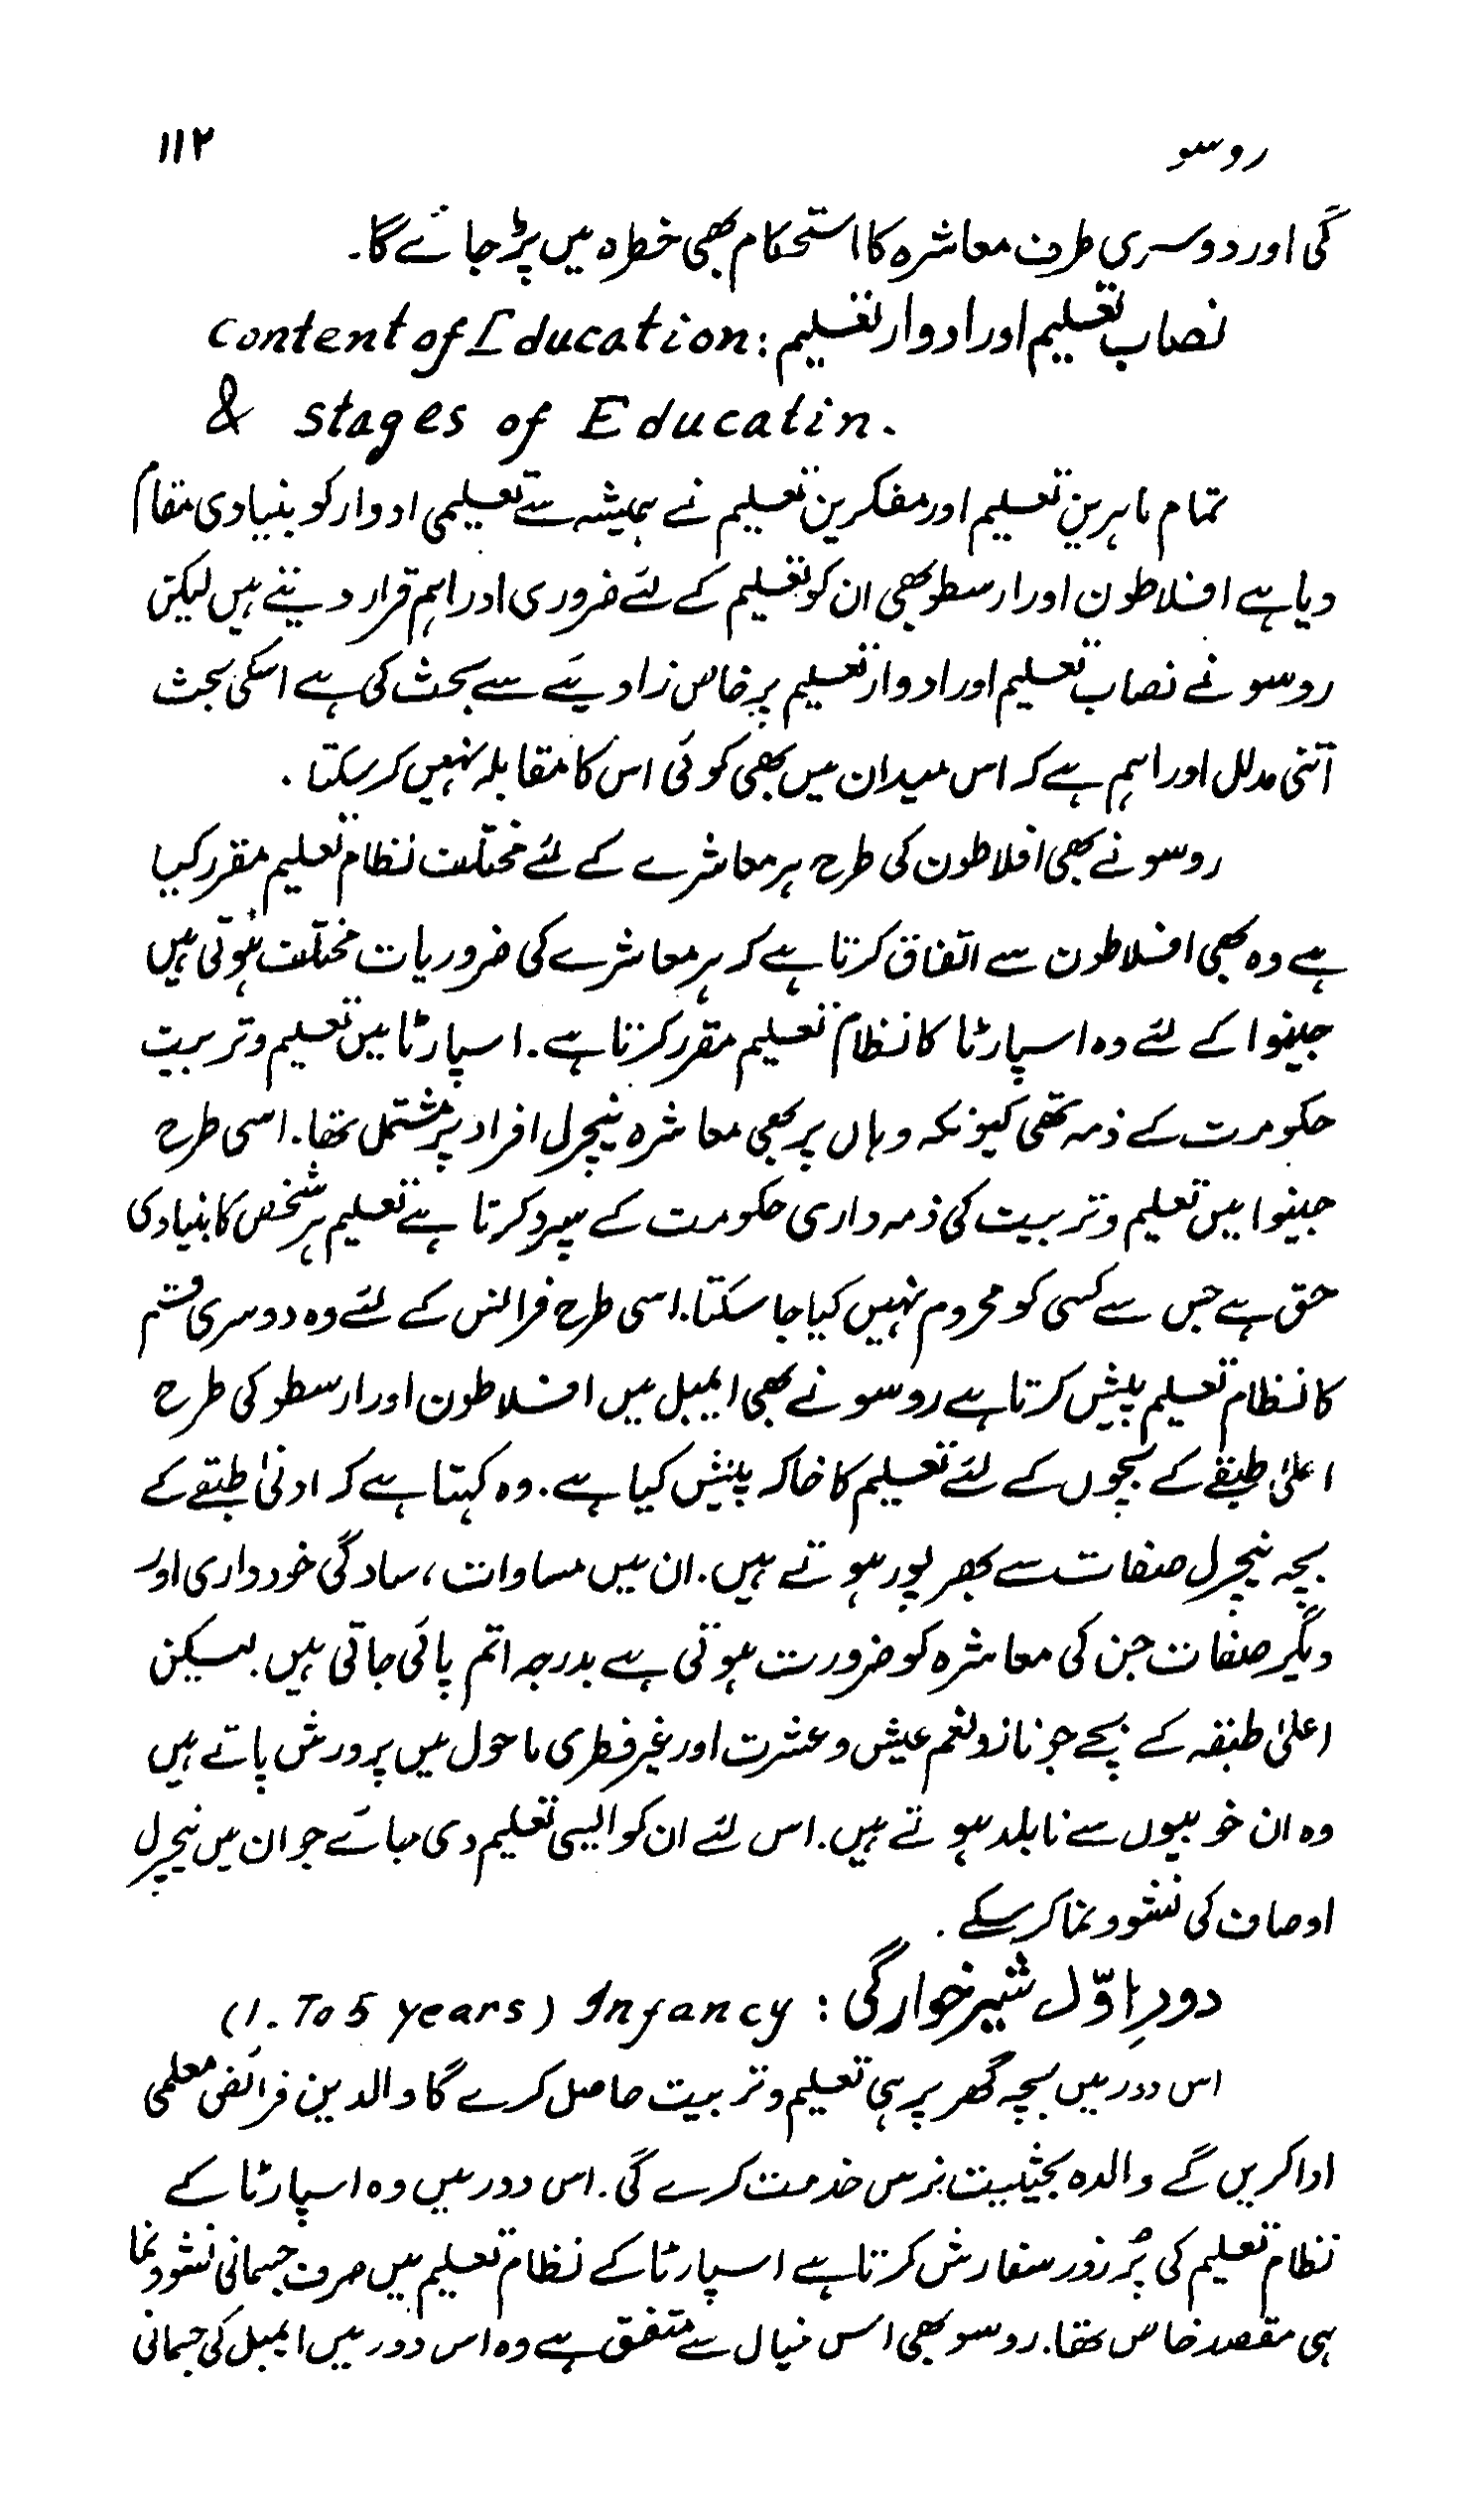 روسو ۱۱۲
گی اور دوسری طرف معاشرہ کا استحکام بھی خطرہ میں پڑ جائے گا۔
نصاب تعلیم اور ادوار تعلیم: Content of Education
& Stages of Educatin.
تمام ماہرین تعلیم اور مفکرین تعلیم نے ہمیشہ سے تعلیمی ادوار کو بنیادی مقام
دیا ہے افلاطون اور ارسطو بھی ان کو تعلیم کے لئے ضروری اور اہم قرار دیتے ہیں لیکن
روسو نے نصاب تعلیم اور ادوار تعلیم پر خاص زاویئے سے بحث کی ہے اسکی بحث
اتنی مدلل اور اہم ہے کہ اس میدان میں بھی کوئی اس کا مقابلہ نہیں کر سکتا۔
روسو نے بھی افلاطون کی طرح ہر معاشرے کے لئے مختلف نظام تعلیم مقرر کیا
ہے وہ بھی افلاطون سے اتفاق کرتا ہے کہ ہر معاشرے کی ضروریات مختلف ہوتی ہیں
جینوا کے لئے وہ اسپارٹا کا نظام تعلیم مقرر کرتا ہے۔ اسپارٹا میں تعلیم و تربیت
حکومت کے ذمہ تھی کیونکہ وہاں پر بھی معاشرہ نیچرل افراد پر مشتمل تھا۔ اسی طرح
جینوا میں تعلیم و تربیت کی ذمہ داری حکومت کے سپرد کرتا ہے تعلیم ہر شخص کا بنیادی
حق ہے جس سے کسی کو محروم نہیں کیا جا سکتا۔ اسی طرح فرانس کے لئے وہ دوسری قسم
کا نظام تعلیم پیش کرتا ہے روسو نے بھی ایمیل میں افلاطون اور ارسطو کی طرح
اعلیٰ طبقے کے بچوں کے لئے تعلیم کا خاکہ پیش کیا ہے۔ وہ کہتا ہے کہ ادنیٰ طبقے کے
بچہ نیچرل صفات سے بھرپور ہوتے ہیں۔ ان میں مساوات، سادگی خودداری اور
دیگر صفات جن کی معاشرہ کو ضرورت ہوتی ہے بدرجہ اتم پائی جاتی ہیں۔ لیکن
اعلیٰ طبقہ کے بچے جو ناز و نعم عیش و عشرت اور غیر فطری ماحول میں پرورش پاتے ہیں
وہ ان خوبیوں سے نابلد ہوتے ہیں۔ اس لئے ان کو ایسی تعلیم دی جائے جو ان میں نیچرل
اوصاف کی نشوونما کر سکے۔
دورِ اوّل شیرخوارگی: Infancy (1. To 5 years)
اس دور میں بچہ گھر پر ہی تعلیم و تربیت حاصل کرے گا والدین فرائض معلمی
ادا کریں گے والدہ بحثییت نرس خدمت کرے گی۔ اس دور میں وہ اسپارٹا کے
نظام تعلیم کی پُر زور سفارش کرتا ہے اسپارٹا کے نظام تعلیم میں صرف جسمانی نشوونما
ہی مقصد خاص تھا۔ روسو بھی اس خیال سے متفق ہے وہ اس دور میں ایمیل کی جسمانی